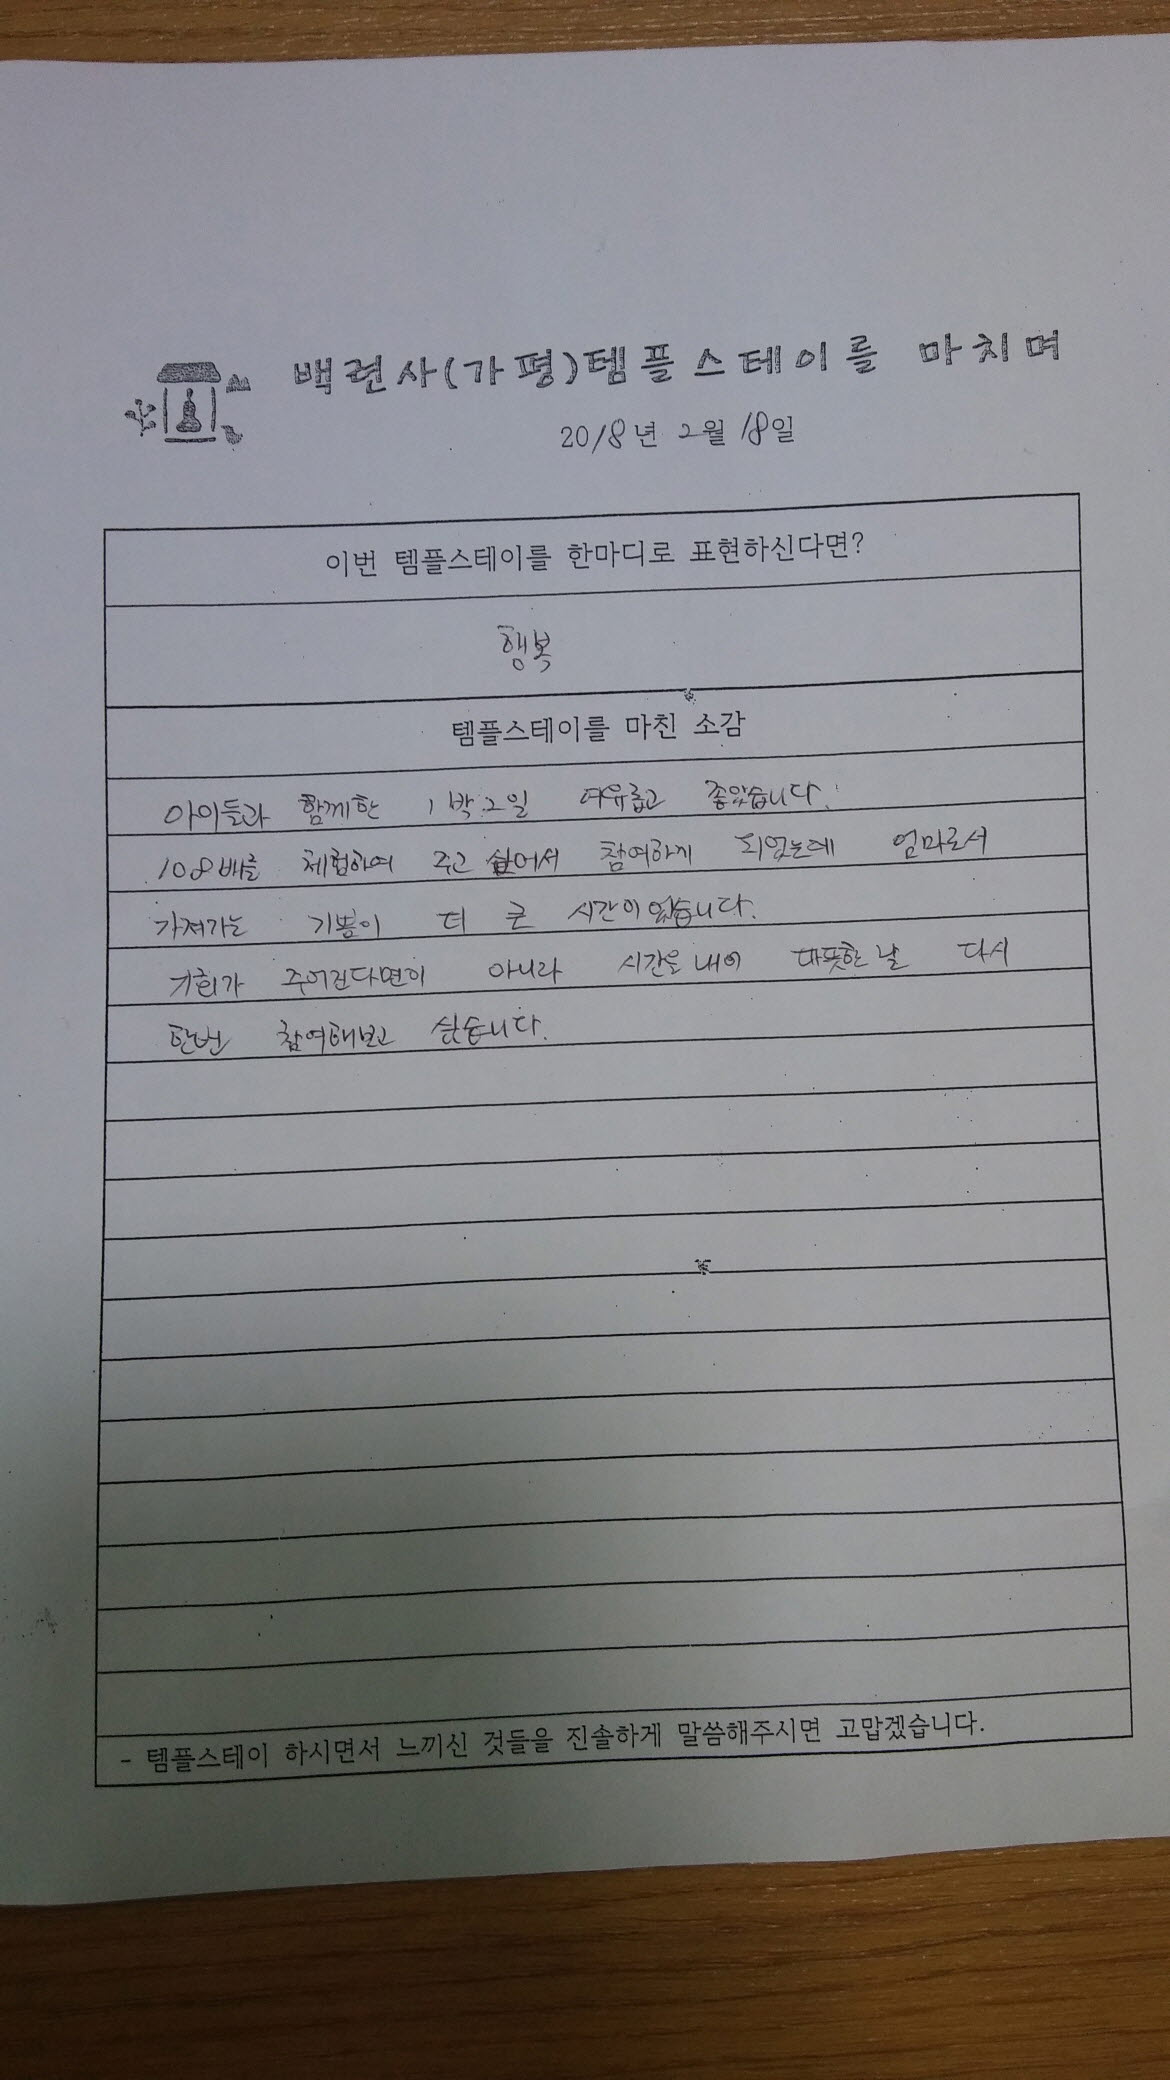 백련사(가평)템플스테이를 마치며
2018년 2월 18일
이번 템플스테이를 한마디로 표현하신다면?
행복
템플스테이를 마친 소감
아이들과 함께한 1박2일 여유롭고 좋았습니다.
108배를 체험하여 주고 싶어서 참여하게 되었는데 엄마로서
가져가는 기쁨이 더 큰 시간이었습니다.
기회가 주어진다면이 아니라 시간을 내어 따뜻한 날 다시
한번 참여해보고 싶습니다.
- 템플스테이 하시면서 느끼신 것들을 진솔하게 말씀해주시면 고맙겠습니다.